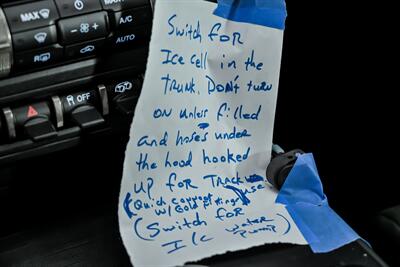 MAX
A/C
AUTO
R
OFF
Switch FOR
Ice cell in the
TRUNK. DON'T turn
ON unless filled
and hoses under
the hood hooked
UP FOR TRACK use
(Quick connect
w/ Gold fittings)
(Switch for
I/c water pump)